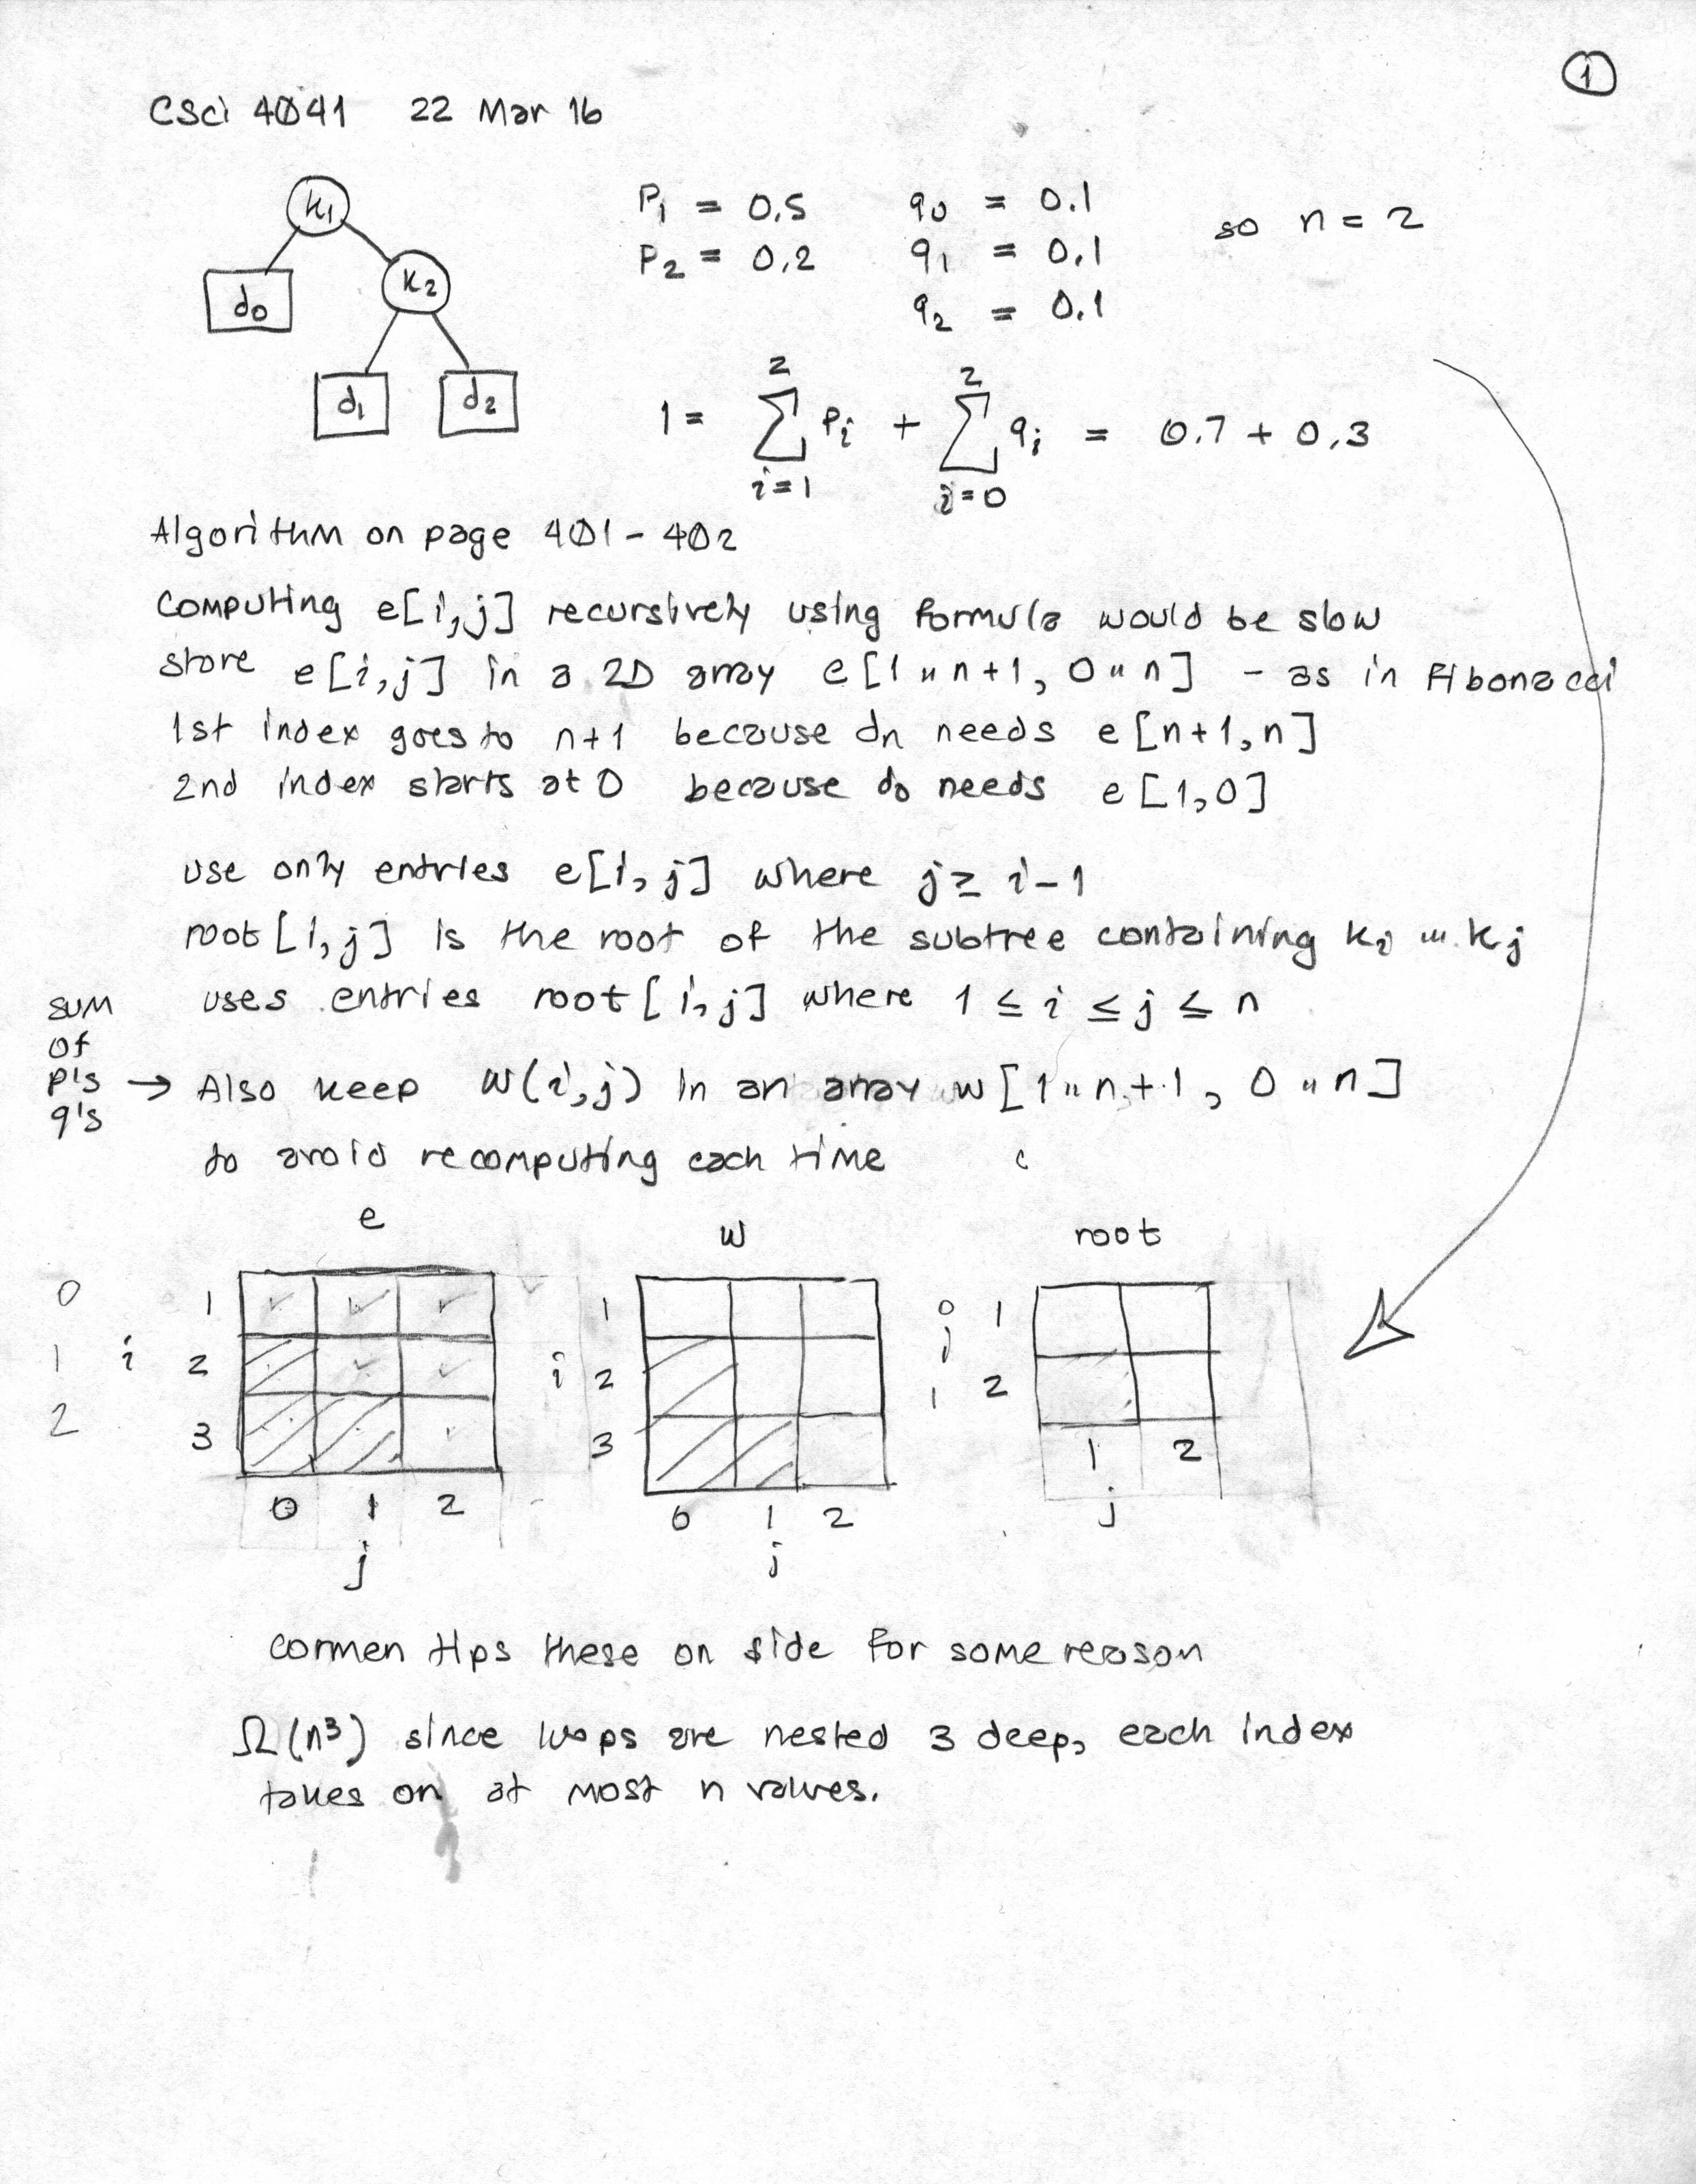 1
CSci 4041 22 Mar 16
k1
d0
k2
d1
d2
P1 = 0.5 q0 = 0.1
P2 = 0.2 q1 = 0.1
q2 = 0.1
so n = 2
1 = 2 Σ i=1 Pi + 2 Σ i=0 qi = 0.7 + 0.3
Algorithm on page 401 - 402
computing e[i,j] recursively using formula would be slow
store e[i,j] in a 2D array e[1..n+1, 0..n] - as in Fibonacci
1st index goes to n+1 because dn needs e[n+1,n]
2nd index starts at 0 because d0 needs e[1,0]
use only entries e[i,j] where j ≥ i-1
root[i,j] is the root of the subtree containing ki ... kj
uses entries root[i,j] where 1 ≤ i ≤ j ≤ n
sum
of
p's
q's
→ Also keep w(i,j) in an array w[1..n+1, 0..n]
to avoid recomputing each time
e
0 1
1 i 2
2 3
0 1 2
j
w
1
i 2
3
0 1 2
j
root
0 1
i
1 2
1 2
j
cormen tips these on side for some reason
Ω(n³) since loops are nested 3 deep, each index
takes on at most n values.